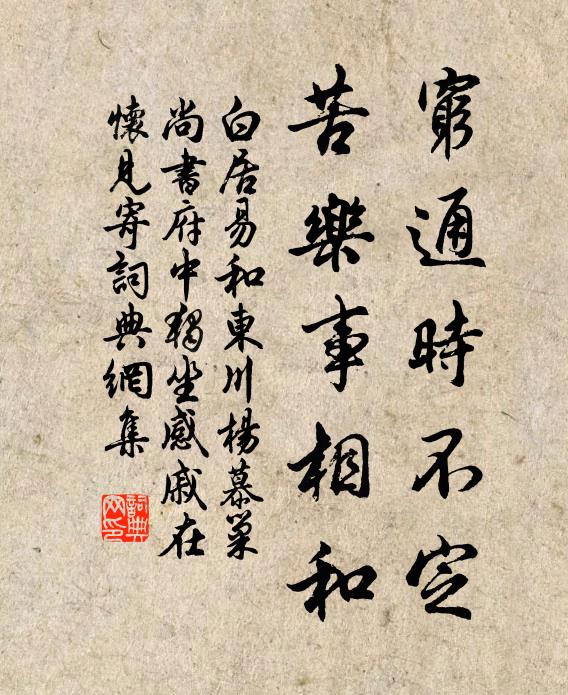 窮通時不定
苦樂事相和
白居易和東川楊慕巢
尚書府中獨坐感戚在
懷見寄詞典網集
詞典網印